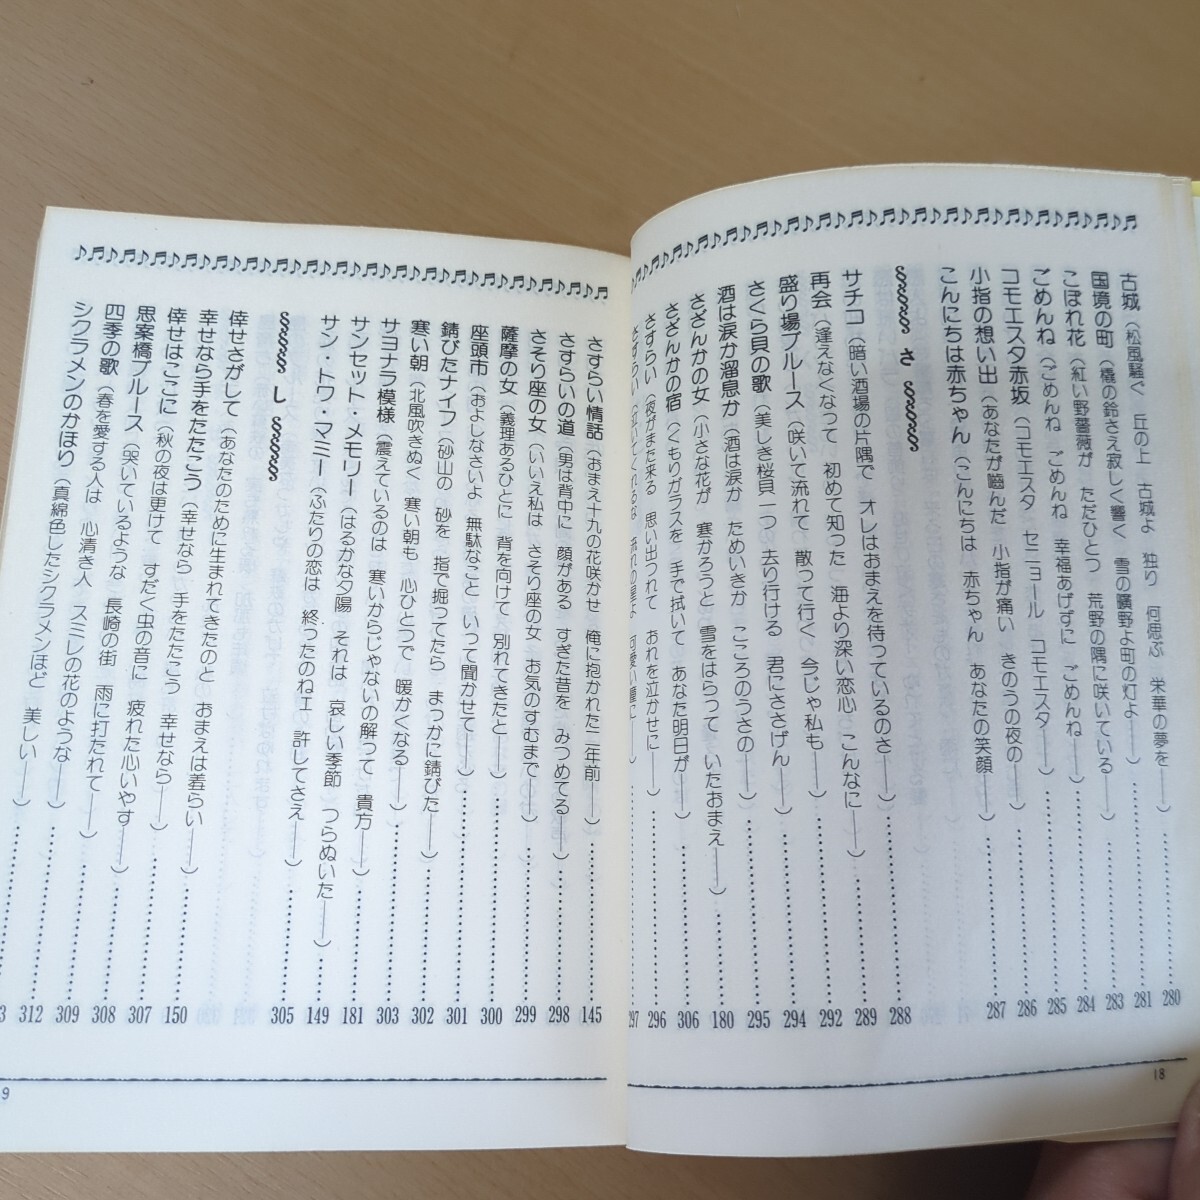 古城（松風騒ぐ　丘の上　古城よ　独り　何偲ぶ　栄華の夢を――）…… 280
国境の町（橇の鈴さえ寂しく響く　雪の曠野よ町の灯よ――）…… 281
こぼれ花（紅い野薔薇が　ただひとつ　荒野の隅に咲いている――）…… 283
ごめんね（ごめんね　ごめんね　幸福あげずに　ごめんね――）…… 284
コモエスタ赤坂（コモエスタ　セニョール　コモエスタ――）…… 285
小指の想い出（あなたが嚙んだ　小指が痛い　きのうの夜の――）…… 286
こんにちは赤ちゃん（こんにちは　赤ちゃん　あなたの笑顔――）…… 287
さ
サチコ（暗い酒場の片隅で　オレはおまえを待っているのさ――）…… 288
再会（逢えなくなって　初めて知った　海より深い恋心　こんなに――）…… 289
盛り場ブルース（咲いて流れて　散って行く　今じゃ私も――）…… 292
さくら貝の歌（美しき桜貝一つ　去り行ける　君にささげん――）…… 294
酒は涙か溜息か（酒は涙か　ためいきか　こころのうさの――）…… 295
さざんかの女（小さな花が　寒かろうと　雪をはらって　いたおまえ――）…… 180
さざんかの宿（くもりガラスを　手で拭いて　あなた明日が――）…… 306
さすらい（夜がまた来る　思い出つれて　おれを泣かせに――）…… 296
さすらい 297
18
さすらい情話（おまえ十九の花咲かせ　俺に抱かれた二年前――）…… 145
さすらいの道（男は背中に　顔がある　すぎた昔を　みつめてる――）…… 298
さそり座の女（いいえ私は　さそり座の女　お気のすむまで――）…… 299
薩摩の女（義理あるひとに　背を向けて　別れてきたと――）…… 300
座頭市（およしなさいよ　無駄なこと　いって聞かせて――）…… 301
錆びたナイフ（砂山の　砂を　指で掘ってたら　まっかに錆びた――）…… 302
寒い朝（北風吹きぬく　寒い朝も　心ひとつで　暖かくなる――）…… 303
サヨナラ模様（震えているのは　寒いからじゃないの解って　貴方――）…… 181
サンセット・メモリー（はるかな夕陽　それは　哀しい季節　つらぬいた――）…… 149
サン・トワ・マミー（ふたりの恋は　終ったのねェ　許してさえ――）…… 305
し
倖せさがして（あなたのために生まれてきたのと　おまえは羞らい――）…… 150
幸せなら手をたたこう（幸せなら　手をたたこう　幸せなら――）…… 307
倖せはここに（秋の夜は更けて　すだく虫の音に　疲れた心いやす――）…… 308
思案橋ブルース（哭いているような　長崎の街　雨に打たれて――）…… 309
四季の歌（春を愛する人は　心清き人　スミレの花のような――）…… 312
シクラメンのかほり（真綿色したシクラメンほど　美しい――）…… 3
9